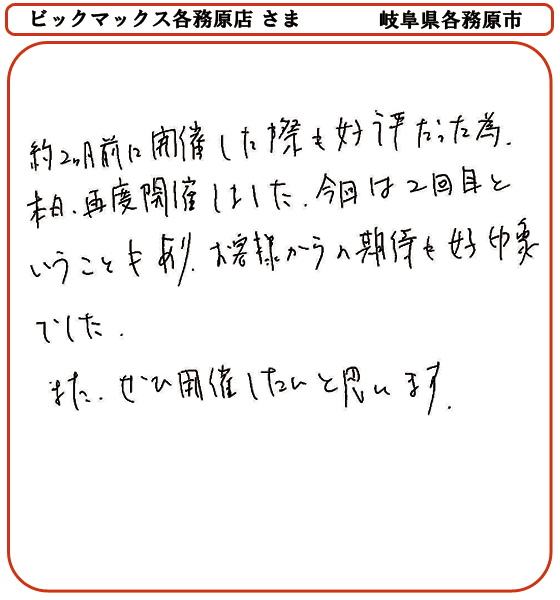 ビックマックス各務原店 さま 岐阜県各務原市
約2ヶ月前に開催した際も好評だった為、
本日、再度開催しました。今回は2回目と
いうことも あり、お客様からの期待も好印象
でした。
また、ぜひ開催したいと思います。